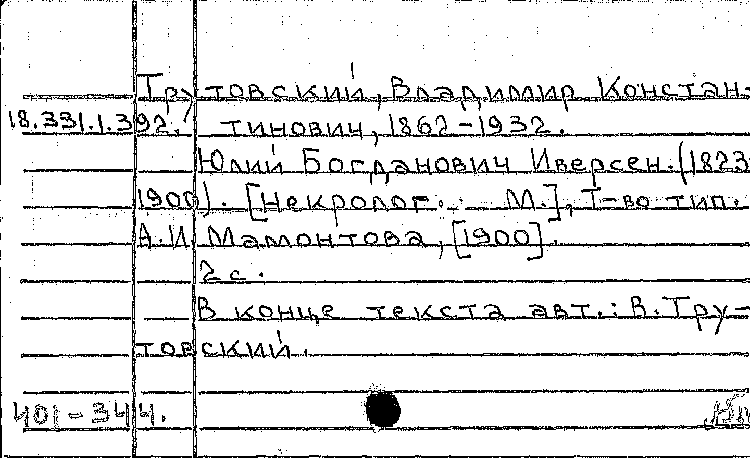 Трутовский, Владимир Констан-
18.331.1.392. тинович, 1862-1932.
Юлий Богданович Иверсен. (1823
1900). [Некролог. М.], Т-во тип.
А.И. Мамонтова, [1900].
2 с.
В конце текста авт.: В. Тру-
товский.
401-344.